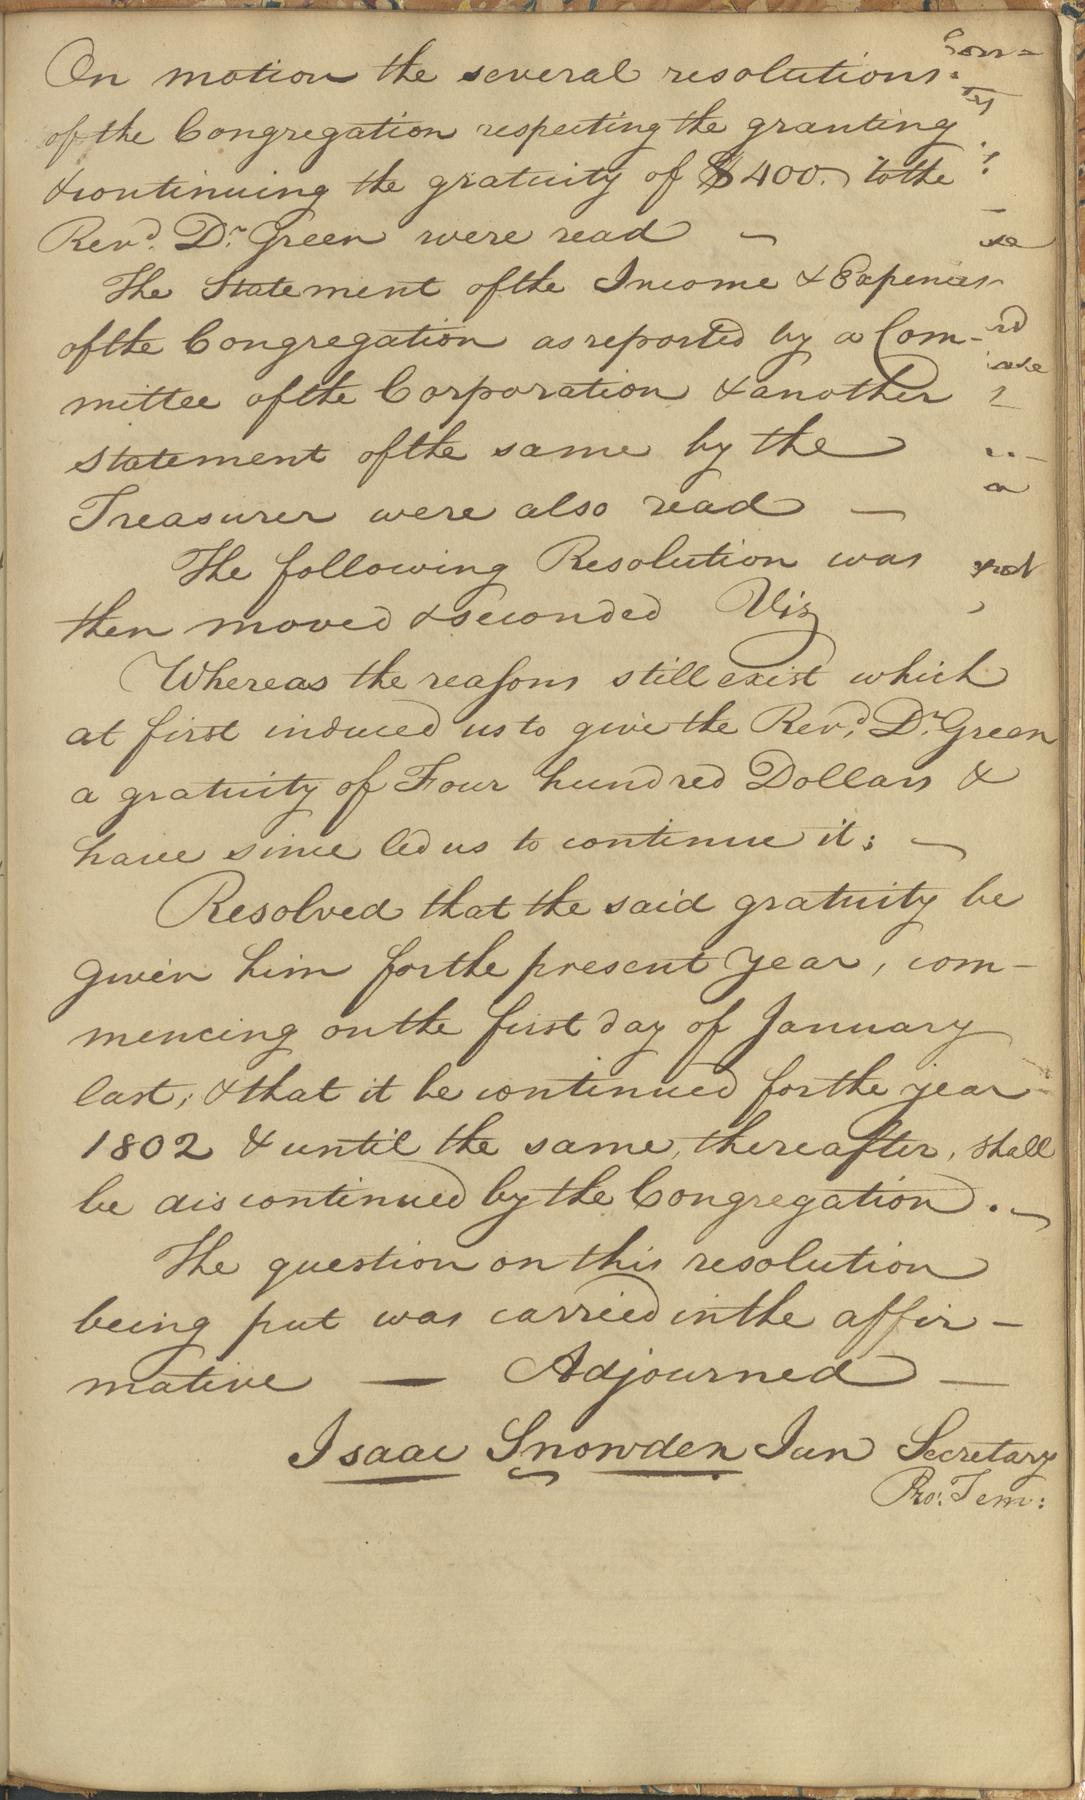 On motion the several resolutions
of the Congregation respecting the granting
& continuing the gratuity of $400. to the
Revd. Dr. Green were read —
The Statement of the Income & Expences
of the Congregation as reported by a Com-
mittee of the Corporation & another
statement of the same by the
Treasurer were also read —
The following Resolution was
then moved & seconded Viz
Whereas the reasons still exist which
at first induced us to give the Revd. Dr. Green
a gratuity of Four hundred Dollars &
have since led us to continue it; —
Resolved that the said gratuity be
given him for the present year, com-
mencing on the first day of January
last; & that it be continued for the year
1802 & until the same, thereafter, shall
be discontinued by the Congregation. —
The question on this resolution
being put was carried in the affir-
mative — Adjourned —
Isaac Snowden Jun Secretary
Pro: Tem: